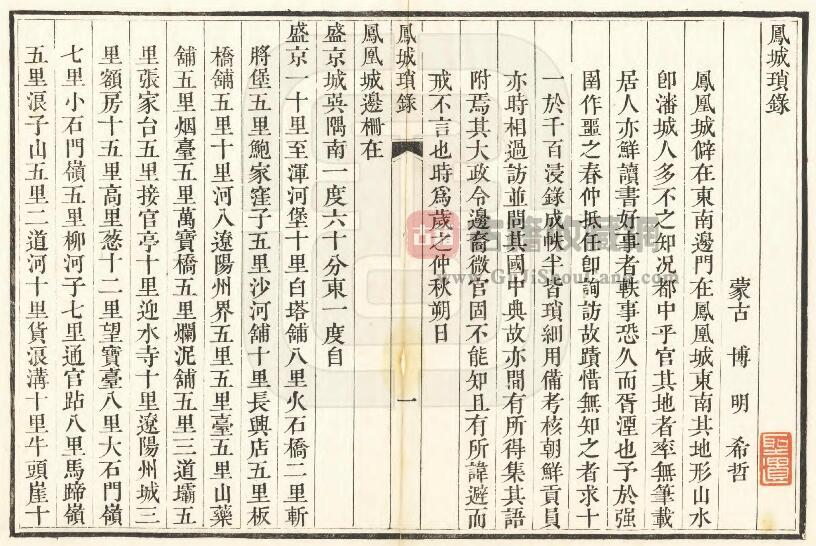 鳳城瑣錄
蒙古 博 明 希哲
鳳凰城僻在東南邊門在鳳凰城東南其地形山水
卽瀋城人多不之知況都中乎官其地者率無筆載
居人亦鮮讀書好事者軼事恐久而胥湮也予於强
圉作噩之春仲抵任卽詢訪故蹟惜無知之者求十
一於千百浸錄成帙半皆瑣細用備考核朝鮮貢員
亦時相過訪並問其國中典故亦間有所得集其語
附焉其大政令邊裔微官固不能知且有所諱避而
戒不言也時爲歲之仲秋朔日
鳳城瑣錄
一
鳳凰城邊柵在
盛京城巽隅南一度六十分東一度自
盛京一十里至渾河堡十里白塔舖八里火石橋二里斬
將堡五里鮑家窪子五里沙河舖十里長興店五里板
橋舖五里十里河八遼陽州界五里五里臺五里山藥
舖五里烟臺五里萬寶橋五里爛泥舖五里三道壩五
里張家台五里接官亭十里迎水寺十里遼陽州城三
里額房十五里高里葱十二里望寶臺八里大石門嶺
七里小石門嶺五里柳河子七里通官跕八里馬蹄嶺
五里浪子山五里二道河十里貨浪溝十里牛頭崖十
古籍收藏网
www.GuJiShouCang.com